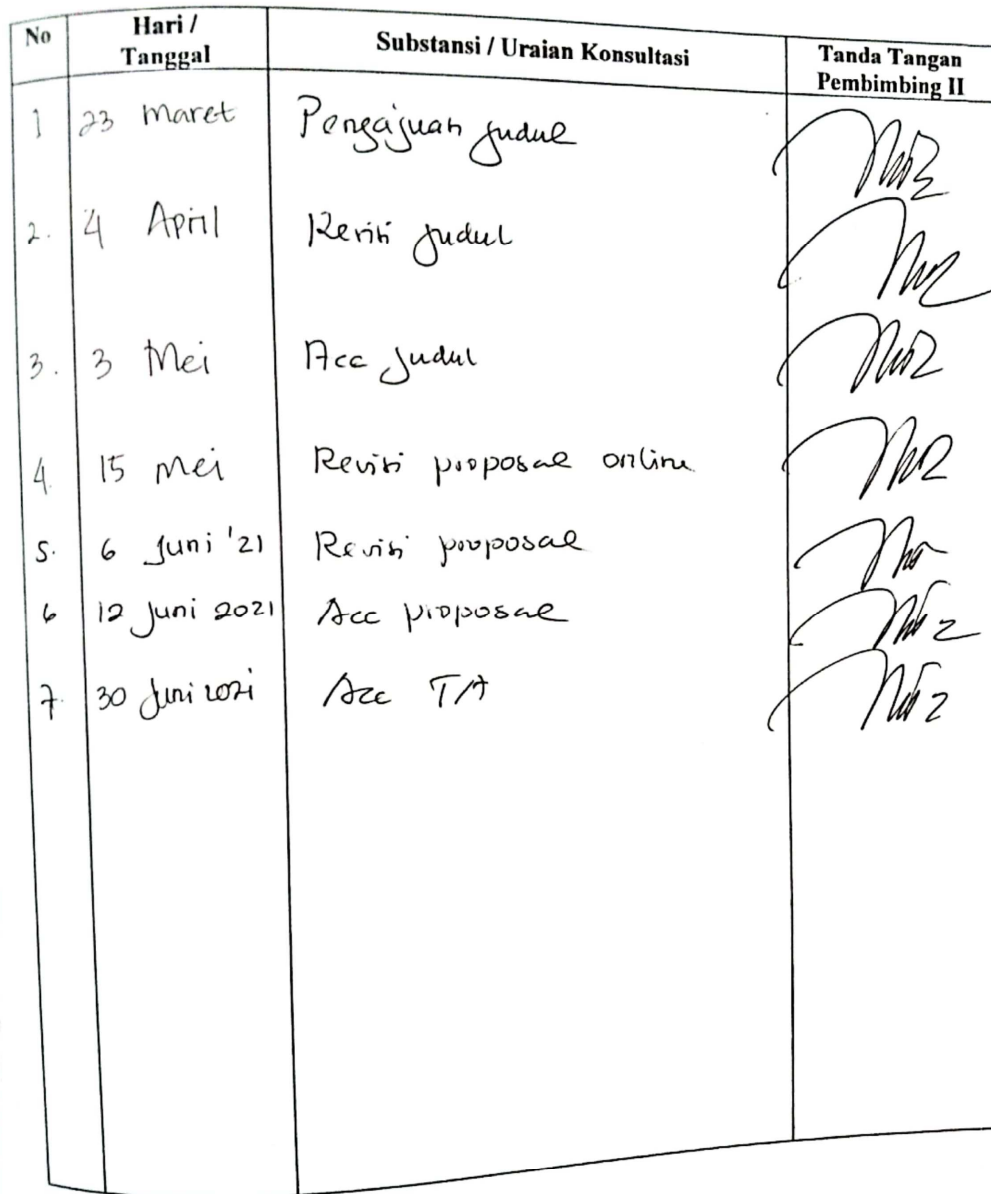 No Hari / Tanggal Substansi / Uraian Konsultasi Tanda Tangan Pembimbing II
1 23 Maret Pengajuan judul
2. 4 April Revisi judul
3. 3 Mei Acc judul
4. 15 Mei Revisi proposal online
5. 6 Juni '21 Revisi proposal
6 12 Juni 2021 Acc proposal
7. 30 Juni 2021 Acc TA